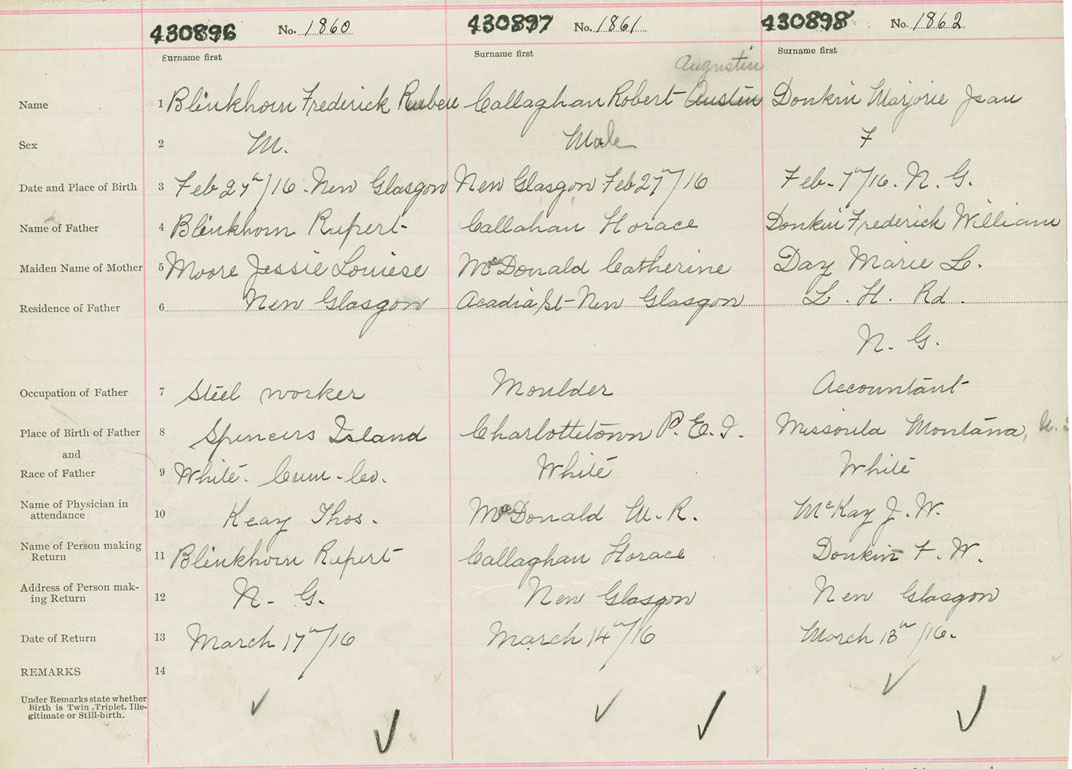 430896 No. 1860 430897 No. 1861 430898 No. 1862
Surname first Surname first Surname first
Augustin
Name 1 Blinkhorn Frederick Ruben Callaghan Robert Austin Donkin Marjorie Jean
Sex 2 M. Male F
Date and Place of Birth 3 Feb 27th/16. New Glasgow New Glasgow Feb 27th/16 Feb-7th/16. N. G.
Name of Father 4 Blinkhorn Rupert Callahan Horace Donkin Frederick William
Maiden Name of Mother 5 Moore Jessie Louiese McDonald Catherine Day Marie L.
Residence of Father 6 New Glasgow Acadia St-New Glasgow L. H. Rd.
N. G.
Occupation of Father 7 Steel worker Moulder Accountant
Place of Birth of Father 8 Spencers Island Charlottetown P. E. I. Missoula Montana,
and
Race of Father 9 White. Cum-Co. White White
Name of Physician in
attendance 10 Keay Thos. McDonald M. R. McKay J. W.
Name of Person making
Return 11 Blinkhorn Rupert Callaghan Horace Donkin F. W.
Address of Person mak-
ing Return 12 N. G. New Glasgow New Glasgow
Date of Return 13 March 17th/16 March 14th/16 March 13th/16.
REMARKS 14
Under Remarks state whether
Birth is Twin, Triplet, Ille-
gitimate or Still-birth.